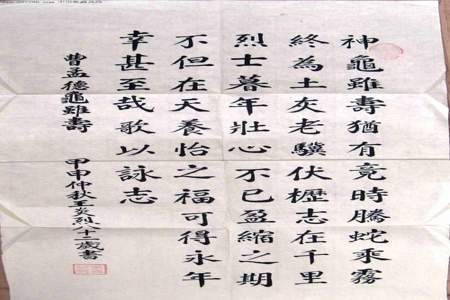 神龜雖壽猶有竟時騰蛇乘霧
終為土灰老驥伏櫪志在千里
烈士暮年壯心不已盈縮之期
不但在天養怡之福可得永年
幸甚至哉歌以詠志
曹孟德龜雖壽 甲申仲秋王炎烈八十二歲書